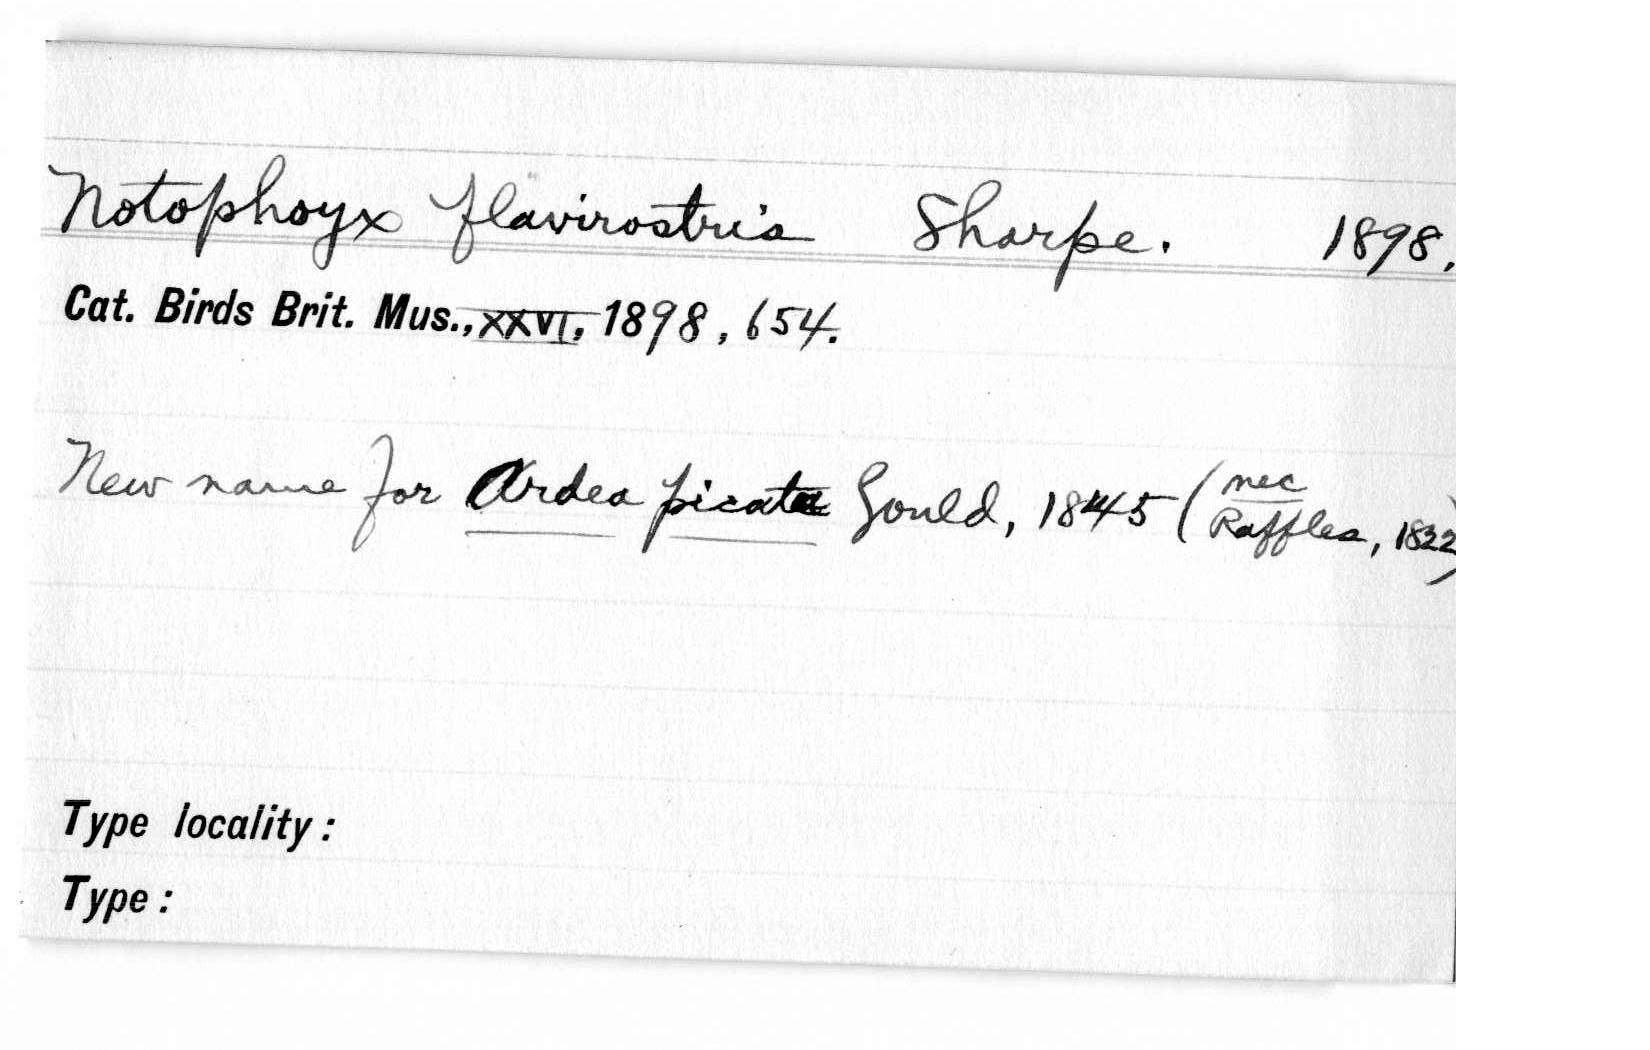 Notophoyx flavirostris Sharpe. 1898.
Cat. Birds Brit. Mus., XXVI, 1898, 654.
New name for Ardea picata Gould, 1845 (nec Raffles, 1822)
Type locality:
Type: